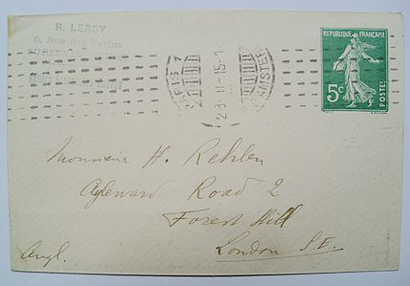 R. LEROY
5, Rue des
PARIS 1
28 - II - 15 - 1
REPUBLIQUE FRANÇAISE
5c
POSTES
Monsieur H. Rehlen
Ayleward Road 2
Forest Hill
London S.E.
Angl.